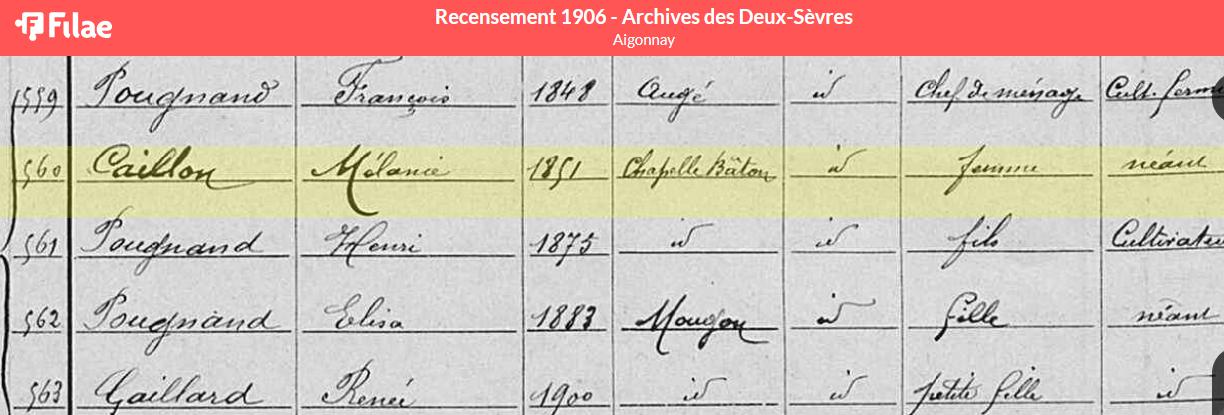 Filae
Recensement 1906 - Archives des Deux-Sèvres
Aigonnay
559 Pougnand François 1848 Augé id Chef de ménage Cult. ferm
560 Caillon Mélanie 1851 Chapelle Bâton id femme néant
561 Pougnand Henri 1875 id id fils Cultivateu
562 Pougnand Elisa 1883 Mougon id fille néant
563 Gaillard Renée 1900 id id petite fille id